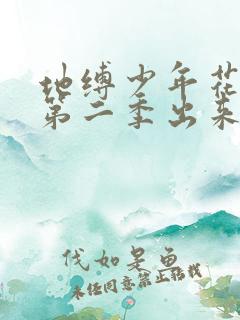 地缚少年花
第二季出来
代如是鱼
未经同意禁止转载